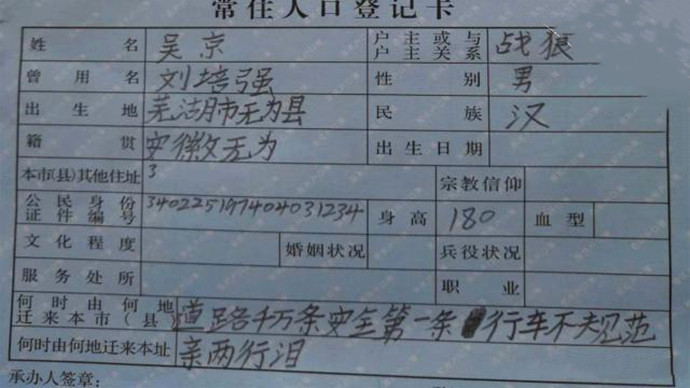 常住人口登记卡
姓名 吴京 户主或与户主关系 战狼
曾用名 刘培强 性别 男
出生地 芜湖市无为县 民族 汉
籍贯 安徽无为 出生日期
本市(县)其他住址 3 宗教信仰
公民身份证件编号 340225197404031234 身高 180 血型
文化程度 婚姻状况 兵役状况
服务处所 职业
何时由何地迁来本市(县) 道路千万条安全第一条 行车不规范
何时由何地迁来本址 亲两行泪
承办人签章：